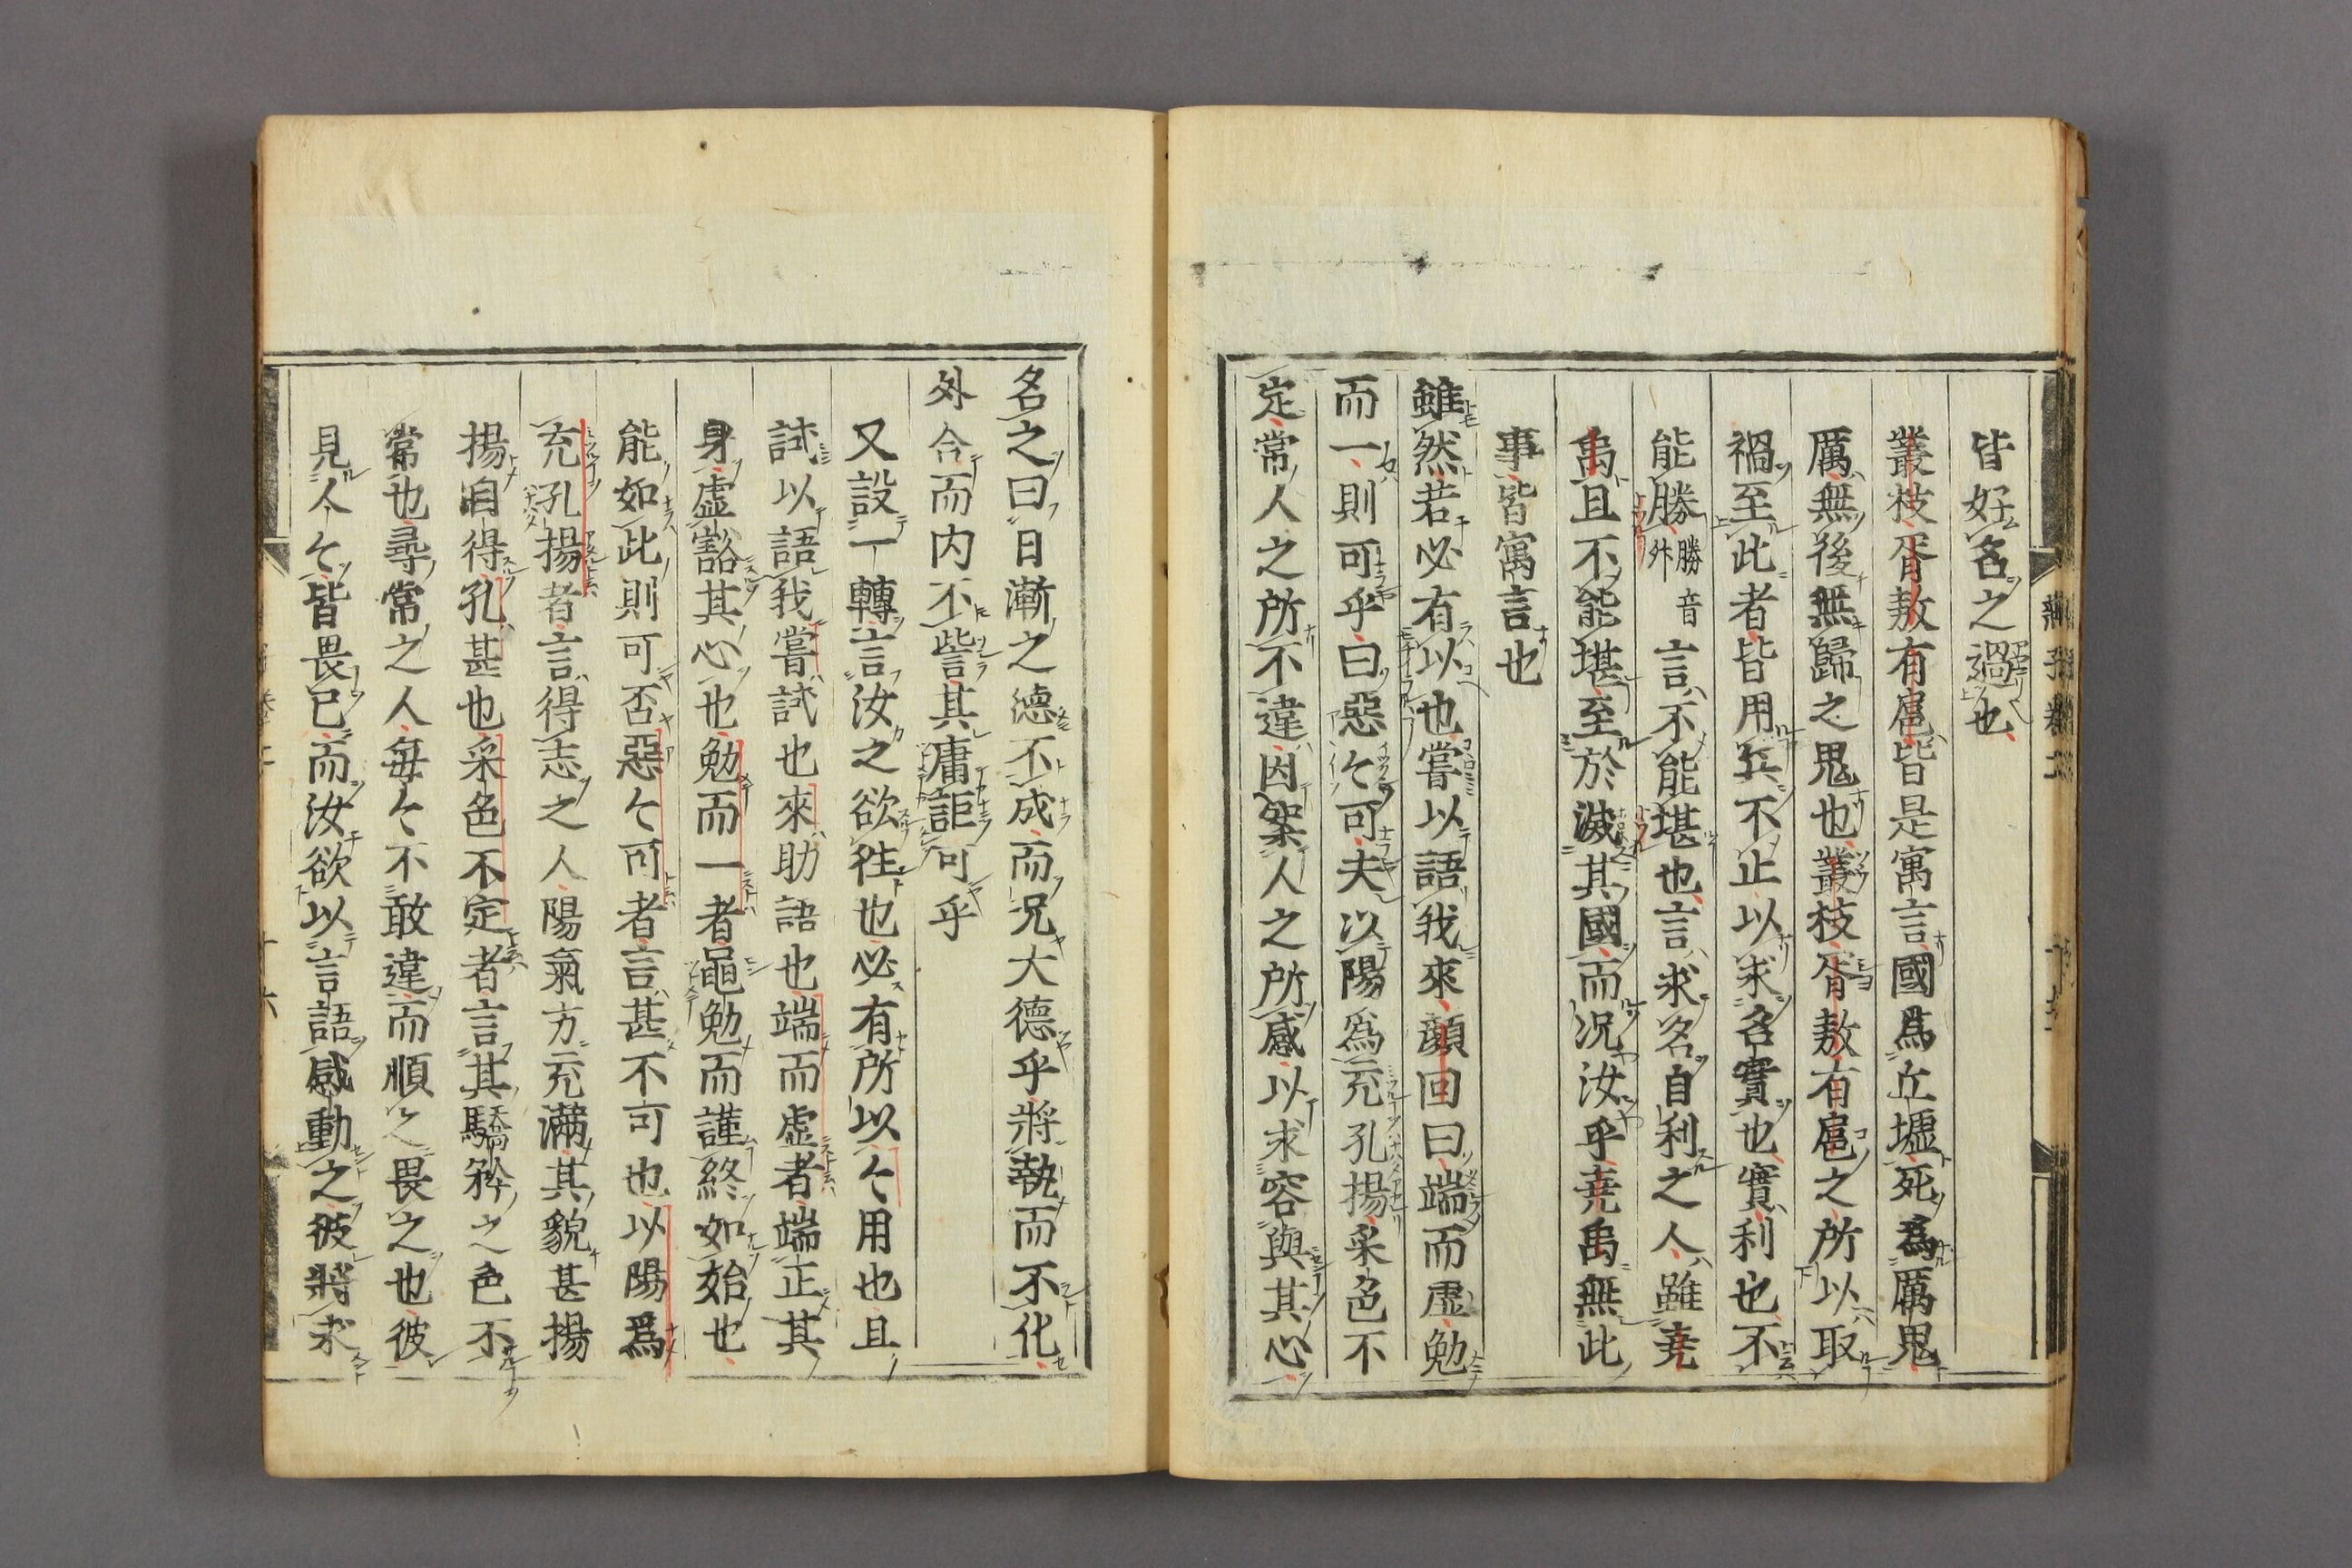 皆好名之過也
叢枝胥敖有扈皆是寓言國爲丘墟死爲厲鬼
厲無後無歸之鬼也叢枝胥敖有扈之所以取
禍至此者皆用兵不止以求名實也實利也不
能勝勝音外言不能堪也言求名自利之人雖堯
禹且不能堪至於滅其國而况汝乎堯禹無此
事皆寓言也
雖然若必有以也嘗以語我來顔回曰端而虛勉
而一則可乎曰惡〻可夫以陽爲充孔揚采色不
定常人之所不違因案人之所感以求容與其心
名之曰日漸之德不成而况大德乎將執而不化
外合而内不訾其庸詎可乎
又設一轉言汝之欲往也必有所以〻用也且
試以語我嘗試也來助語也端而虛者端正其
身虛豁其心也勉而一者黽勉而謹終如始也
能如此則可否惡〻可者言甚不可也以陽爲
充孔揚者言得志之人陽氣方充滿其貌甚揚
揚自得孔甚也采色不定者言其驕矜之色不
常也尋常之人每〻不敢違而順之畏之也彼
見人〻皆畏已而汝欲以言語感動之彼將求